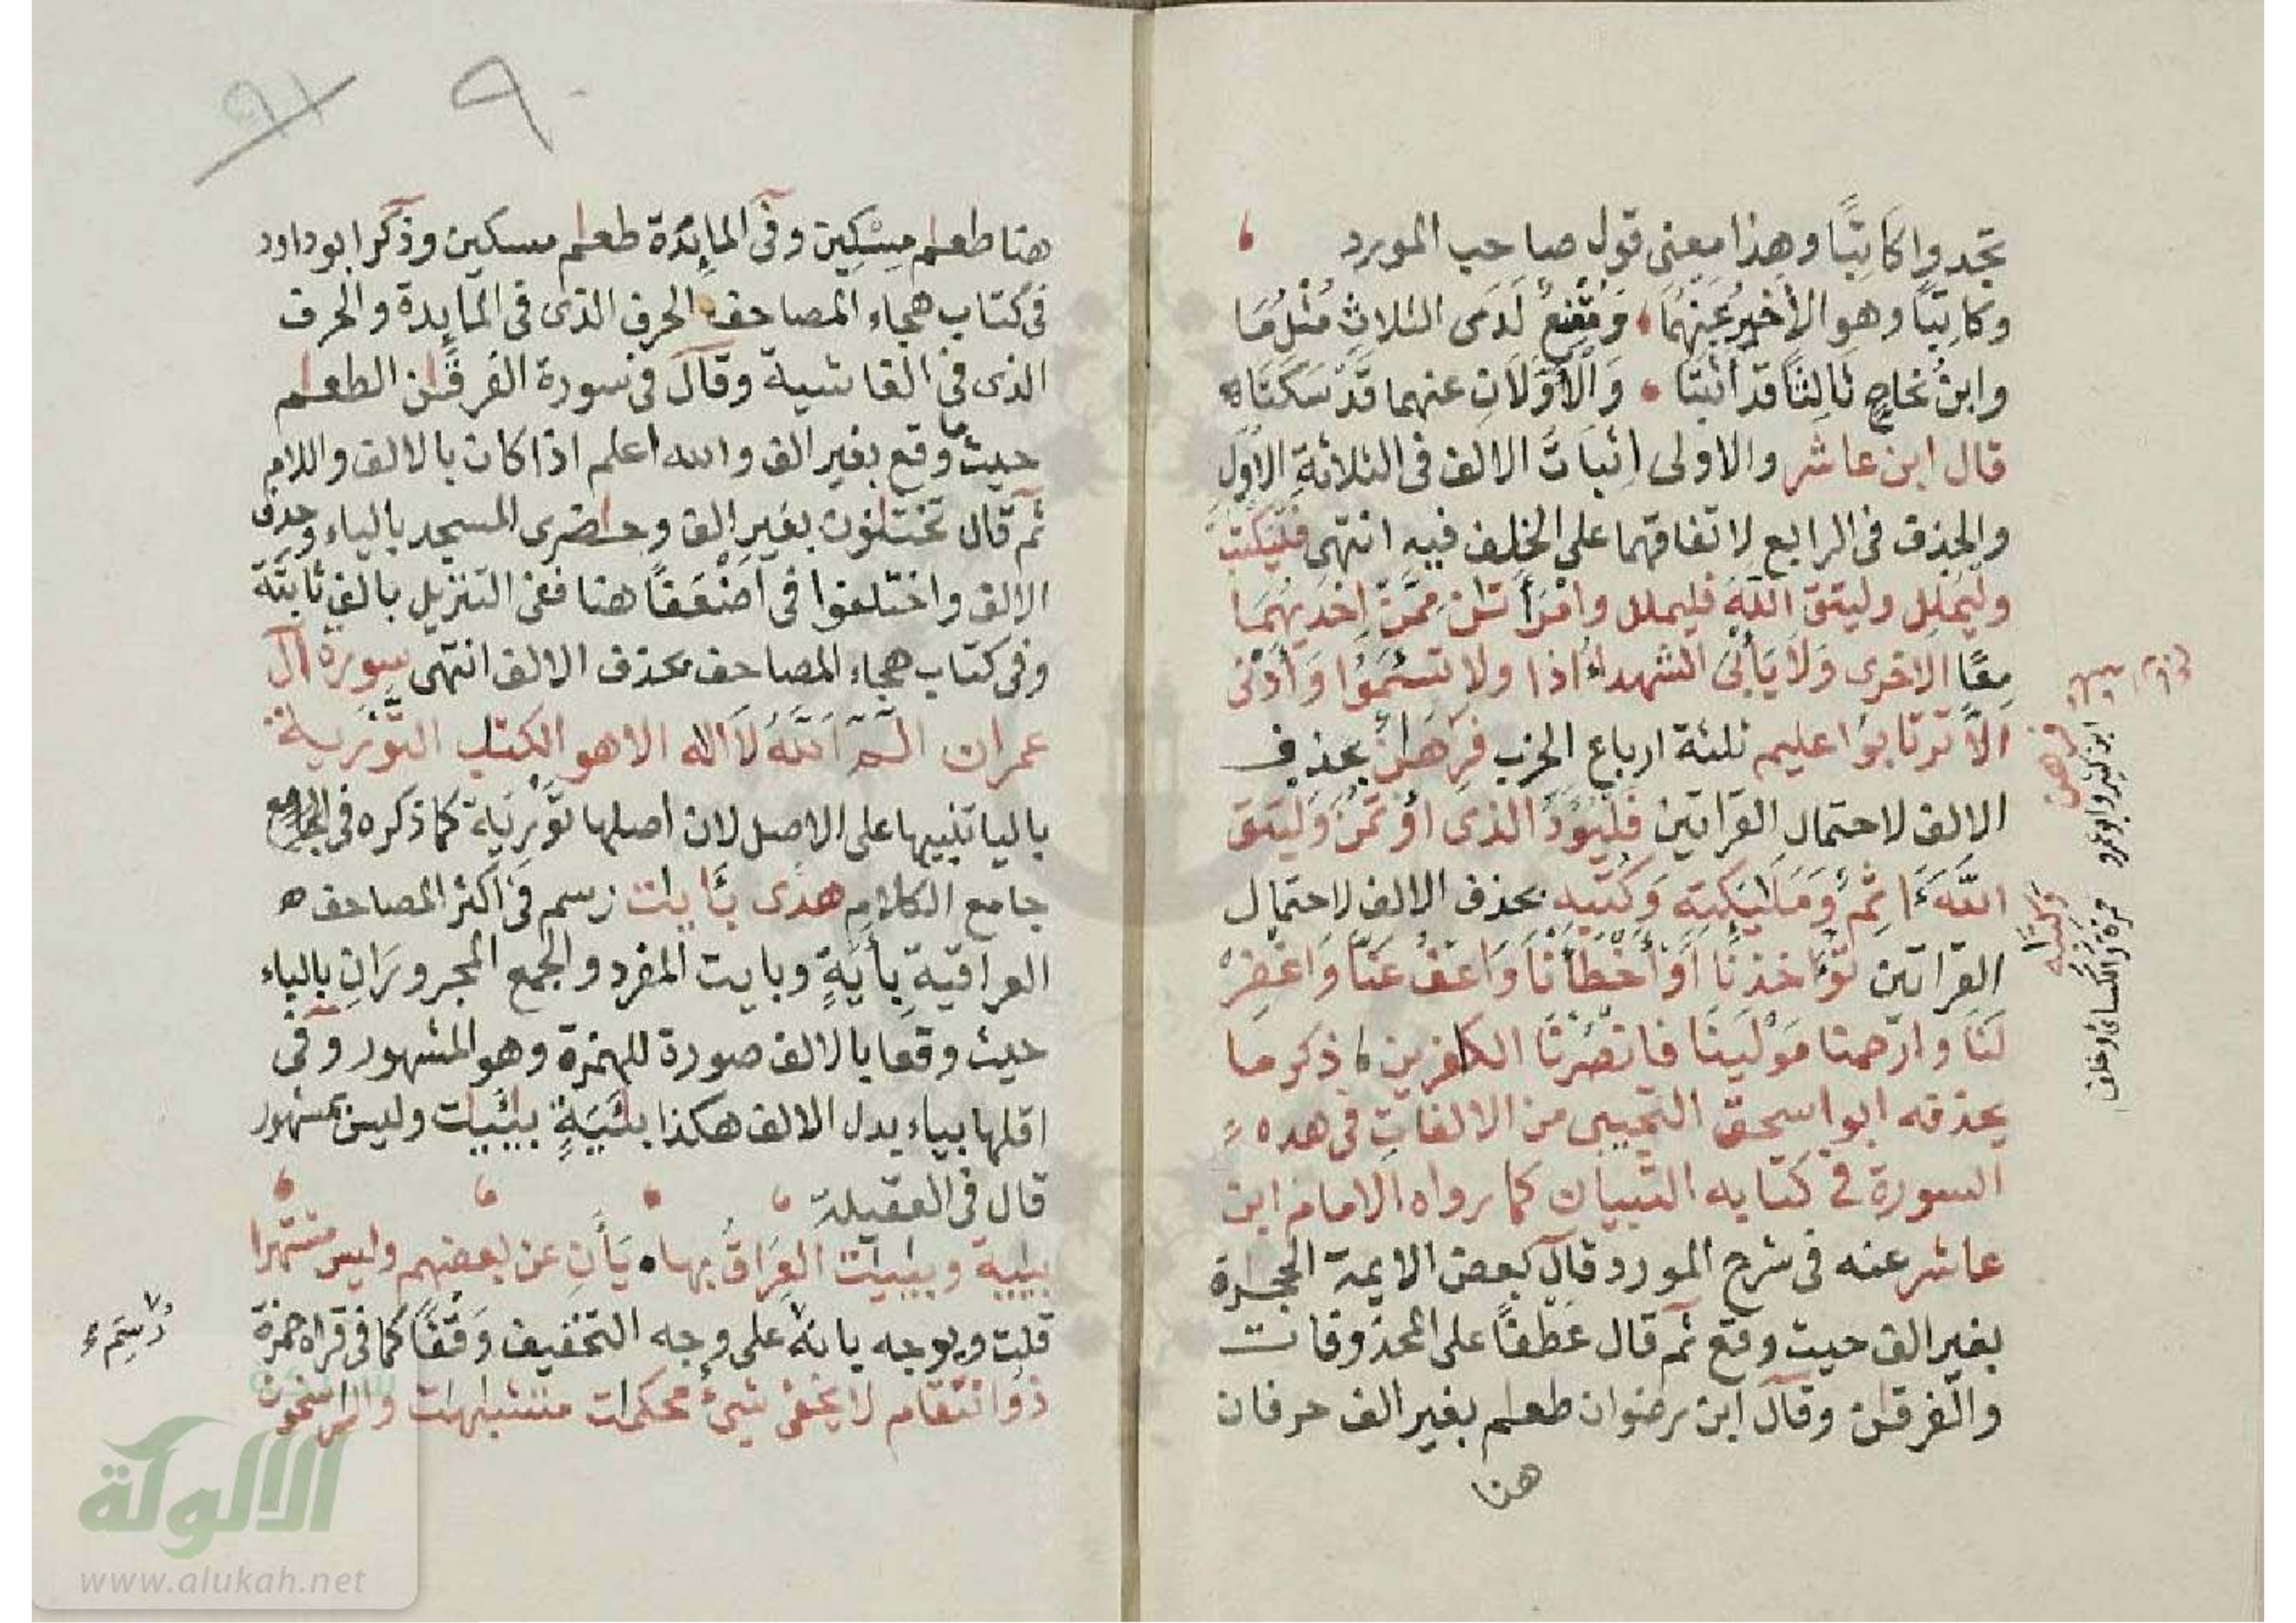 تجدوا كَاتِبًا وهذا معنى قول صاحب المورد
وكَاتِبًا وهو الأخيرُ عَنْهُمَا وَمُقْنِعٌ لَدَى الثلاثِ مِثْلُ مَا
وابنُ نجاحٍ ثَالِثًا قد أثبتَا وَالْأَوَّلَانِ عنهما قَدْ سَكَتَا ه
قال ابن عاشر والاولى اثبَاتُ الالف فى الثلاثةِ الاُوَلِ
والحذف فى الرابع لاتفاقهما على الخلف فيهِ انتهى فَلْيَكْتُبْ
ولْيُمْلِل وليتق اللّه فليملل وامْرَأَتٰن مِمَّن إحْدَيهُمَا
معًا الاخرى وَلَا يَأْبَىٰ الشهداءُ اذا ولا تسـَٔمُوا وَأَدْنىٰ
الَّا تَرْتَابوا عليم ثلثة ارباع الحزب فرهٰن بحذف
الالف لاحتمال القراتين فَلْيُؤَدِّ الذى اؤْتُمِنَ وَلْيَتَّقِ
اللَّهَ ءَاثِمٌ وَمَلَٰٓئِكَتِهِ وَكُتُبِهِ بحذف الالف لاحتمال
القراتين تُؤَاخِذْنَا أَوْ أَخْطَأْنَا وَاعْفُ عَنَّا وَاغْفِرْ
لَنَا وارْحَمنا مَوْلَينَا فانصُرْنَا الكافرين ذكر ما
يحذفه ابو اسحق التجيبى من الالفات فى هذه
السورة فى كتابه التبيان كما رواه الامام ابن
عاشر عنه فى شرح المورد قال بعض الايمة الحجارة
بغير الف حيث وقع ثم قال عَطْفًا على المحذوفات
والفرقٰن وقال ابن رضوان طعٰم بغير الف حرفان
هنا
فرهن
ابن كثير وابو عمرو
وكتٰبه
حمزة والكسائى وخلف
٩٠
٩١
هنا طعٰم مِسْكِين وفى المايدة طعٰم مسكين وذكر ابو داود
فى كتاب هجاء المصاحف الحرف الذى فى المايدة والحرف
الذى فى الغاشية وقال فى سورة الفرقٰن الطعٰم
حيث ما وقع بغير الف والله اعلم اذا كان بالالف واللام
ثم قال تختانون بغير الف وحاضرى المسجد بالياء وحذف
الالف واختلفوا فى اضْعَفًا هنا ففى التنزيل بالف ثابتة
وفى كتاب هجاء المصاحف بحذف الالف انتهى سورة ال
عمران الٓمٓ اَللّٰهُ لَا اله الا هو الكتٰب التَّوْرية
باليا تنبيها على الاصل لان اصلها تَوْرَيَة كما ذكره فى الجامع
جامع الكلام هدى بـَٔايٰت رسم فى اكثر المصاحف ه
العراقية بِأَيَةٍ وبايت المفرد والجمع المجرورَانِ بالباء
حيث وقعا بالالف صورة للهمزة وهو المشهور وفى
اقلها بياء بدل الالف هكذا بـَٔيَيَةٍ بييٰت وليس بمشهور
قال فى العقيلة
بييية وبييٰت العِرَاقُ بها ه يَأَانِ عن بعضهم وليس مشتهرا
قلت ويوجه بانهُ على وجه التخفيف وَقْفًا كما فى قراة حمزة
ذو انتقام لا يخفى شىءٌ محكمات متشٰبهٰت والرٰسخون
الالوكة
www.alukah.net